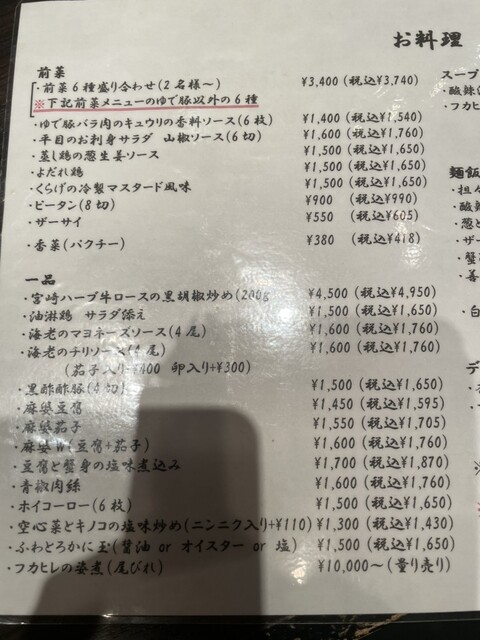 お料理
前菜
・前菜6種盛り合わせ(2名様～) ¥3,400(税込¥3,740)
※下記前菜メニューのゆで豚以外の6種
・ゆで豚バラ肉のキュウリの香料ソース(6枚) ¥1,400(税込¥1,540)
・平目のお刺身サラダ 山椒ソース(6切) ¥1,600(税込¥1,760)
・蒸し鶏の葱生姜ソース ¥1,500(税込¥1,650)
・よだれ鶏 ¥1,500(税込¥1,650)
・くらげの冷製マスタード風味 ¥1,500(税込¥1,650)
・ピータン(8切) ¥900 (税込¥990)
・ザーサイ ¥550 (税込¥605)
・香菜(パクチー) ¥380 (税込¥418)
一品
・宮崎ハーブ牛ロースの黒胡椒炒め(200g ¥4,500(税込¥4,950)
・油淋鶏 サラダ添え ¥1,500(税込¥1,650)
・海老のマヨネーズソース(4尾) ¥1,600(税込¥1,760)
・海老のチリソース(4尾) ¥1,600(税込¥1,760)
(茄子入り+¥400 卵入り+¥300)
・黒酢酢豚(4切) ¥1,500(税込¥1,650)
・麻婆豆腐 ¥1,450(税込¥1,595)
・麻婆茄子 ¥1,550(税込¥1,705)
・麻婆W(豆腐+茄子) ¥1,600(税込¥1,760)
・豆腐と蟹身の塩味煮込み ¥1,700(税込¥1,870)
・青椒肉絲 ¥1,600(税込¥1,760)
・ホイコーロー(6枚) ¥1,500(税込¥1,650)
・空心菜とキノコの塩味炒め(ニンニク入り+¥110) ¥1,300(税込¥1,430)
・ふわとろかに玉(醤油 or オイスター or 塩) ¥1,500(税込¥1,650)
・フカヒレの姿煮(尾びれ) ¥10,000～(量り売り)
スープ
・酸辣
・フカヒ
麺飯
・担々
・酸辣
・葱と
・ザー
・蟹
・善
・白
デ